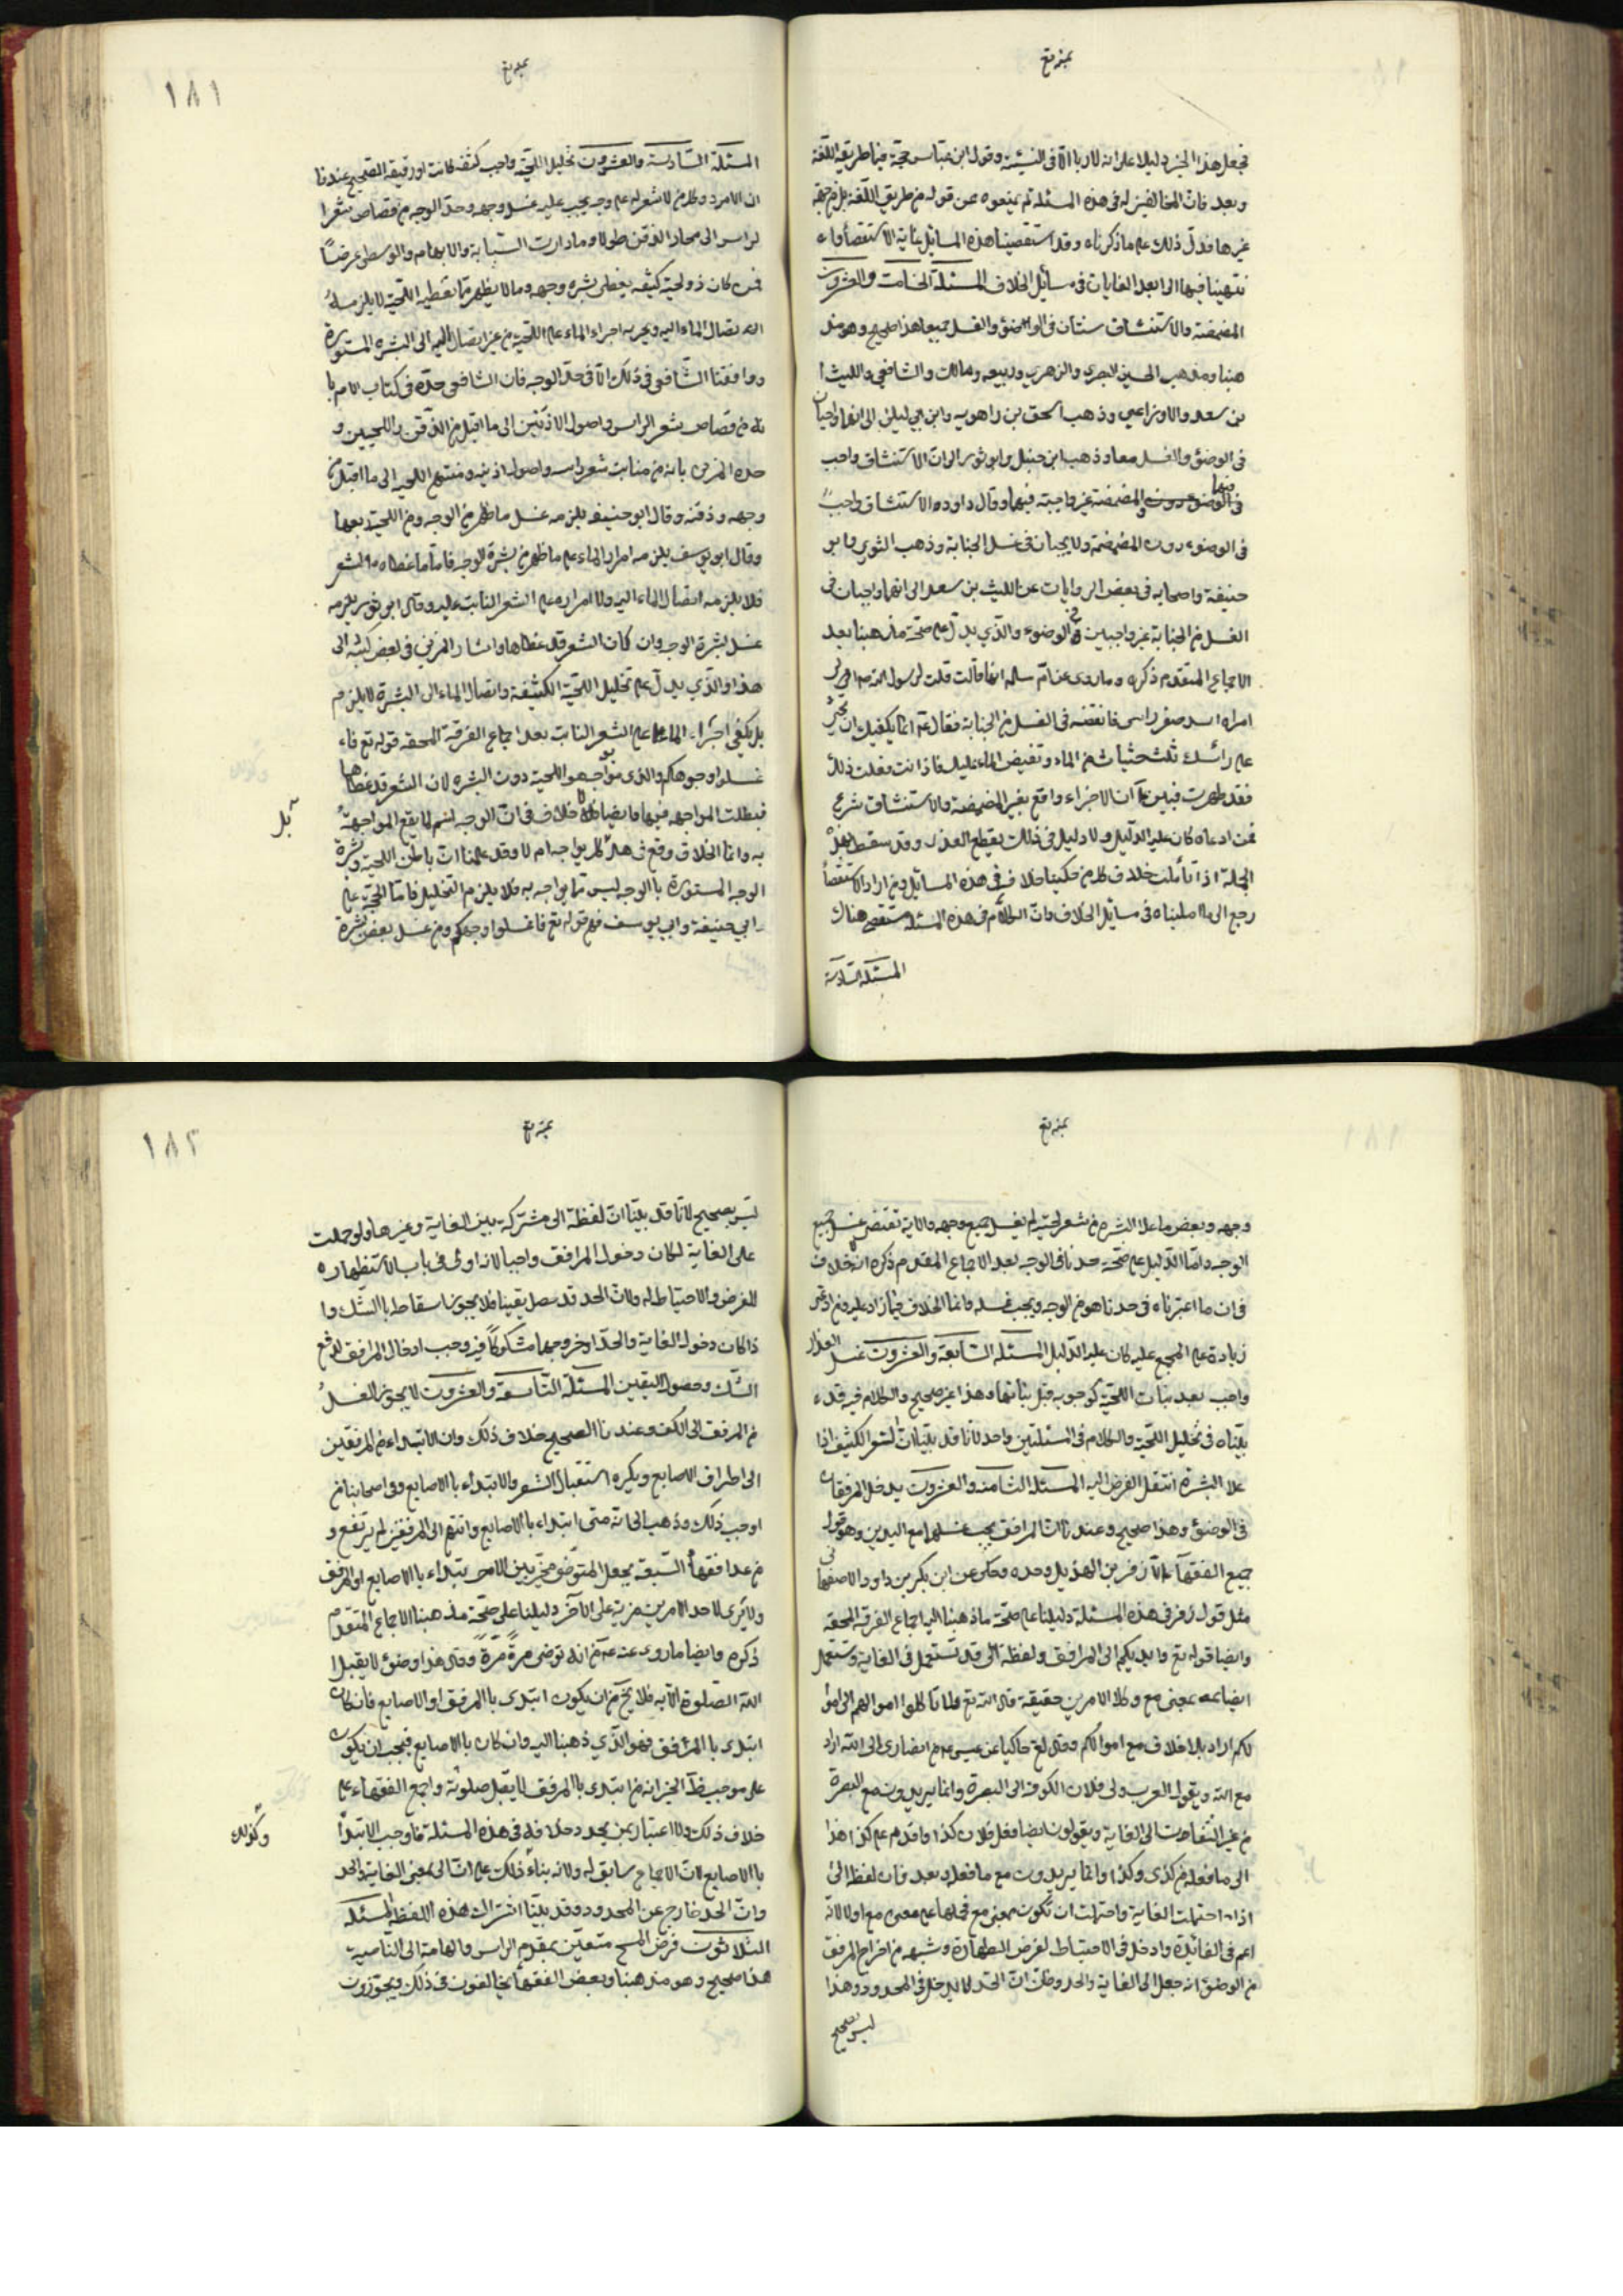 فنجعل هذا الخبر دليلا على انه لا ربا الا فى النسيئة وقول ابن عباس حجة فيما طريقه اللغة
وبعد فان المخالفين له فى هذه المسئلة لم يمنعوه من قوله من طريق اللغة بل من جهة
غيرها فدل ذلك على ما ذكرناه وقد استقصينا هذه المسائل غاية الاستقصاء و
نتهينا فيها الى ابعد الغايات فى مسائل الخلاف المسئلة الخامسة والعشرون
المضمضة والاستنشاق سنتان فى الوضوء والغسل جميعا هذا صحيح وهو مذ
هبنا ومذهب الحسن البصرى والزهرى وربيعه ومالك والشافعى والليث ا
بن سعد والاوزاعي وذهب اسحق بن راهويه وابن ابي ليلى الى انهما واجبان
فى الوضوء والغسل معا وذهب ابن حنبل وابو ثور الى ان الاستنشاق واجب
فيهما
والمضمضة غير واجبة فيهما وقال داود الاستنشاق واجب
فى الوضوء دون المضمضة ولا يجبان فى غسل الجنابة وذهب الثوري وابو
حنيفة واصحابه فى بعض الروايات عن الليث بن سعد الى انهما واجبان فى
الغسل من الجنابة غير واجبين فى الوضوء والذي يدل على صحة مذهبنا بعد
الاجماع المتقدم ذكره وما روى عن ام سلمه انها قالت قلت لرسول الله انى
امراة اشد ضفر راسى فانقضه فى الغسل من الجنابة فقال انما يكفيك ان تحثى
على رأسك ثلث حثيات من الماء وتفيض الماء عليك فاذا انت فعلت ذلك
فقد طهرت فبين ان الاجزاء واقع بغير المضمضة والاستنشاق شرع
فمن ادعاه كان عليه الدليل ولا دليل فى ذلك يقطع العذر وقد سقط بهذه
الجملة اذا تأملت خلاف كل من حكينا خلافه فى هذه المسائل ومن اراد الاستقصاء
رجع الى ما امليناه فى مسائل الخلاف وان الكلام فى هذه المسئلة مستقصى هناك
المسئلة السادسة
١٨١
المسئلة السادسة والعشرون تخليل اللحية واجب كثيفه كانت او رقيقه الصحيح عندنا
ان الامرد وكل من لا شعر له على وجهه يجب عليه غسل وجهه وحد الوجه من قصاص شعر ا
لراس الى محادر الذقن طولا وما دارت السبابة والابهام والوسطى عرضاً
فمن كان ذو لحية كثيفه يغطى بشره وجهه وما لا يظهر مما تغطيه اللحية لا يلزمه
ايصال الماء اليه ويجريه اجراء الماء على اللحية من غير ايصال اليه الى البشره المستورة
ووافقنا الشافعي فى ذلك الا فى حد الوجه فان الشافعى حده فى كتاب الام با
نه من قصاص شعر الراس واصول الاذنين الى ما اقبل من الذقن واللحيين و
حده المزنى بانه من منابت شعر راسه واصول اذنيه ومنتهى اللحيه الى ما اقبل من
وجهه وذقنه وقال ابو حنيفه يلزمه غسل ما ظهر من الوجه ومن اللحية ربعها
وقال ابو يوسف يلزمه امرار الماء على ما ظهر من بشرة الوجه فاما ما غطاه الشعر
فلا يلزمه ايصال الماء اليه ولا امراره على الشعر النابت عليه وقال ابو ثور يلزمه
غسل بشرة الوجه وان كان الشعر قد غطاها واشار المزنى فى بعض كتبه الى
هذا والذي يدل على تخليل اللحية الكثيفة وايصال الماء الى البشرة لا يلزم
بل يكفى اجراء الماء على الشعر النابت بعد اجماع الفرقة المحقه قوله تع فا
غسلوا وجوهكم والذى يواجه هو اللحية دون البشره لان الشعر قد غطاها
فبطلت المواجهه فيها وايضا فلا خلاف فى ان الوجه اسم لما يقع المواجهة
بل
به وانما الخلاف وقع فى هل كل يواجه ام لا وقد علمنا ان باطن اللحية وبشرة
الوجه المستورة با الوجه ليس مما يواجه به فلا يلزم التخليل فاما الحجة على
ابي حنيفة وابى يوسف فهو قوله تع فاغسلوا وجوهكم ومن غسل بعض بشرة
وجهه وبعض ما علا البشره من شعر لحيته لم يغسل جميع وجهه والاية تقتضى غسل جميع
الوجه واما الدليل على صحة حدنا فى الوجه بعد الاجماع المقدم ذكره انه لا خلاف
فى ان ما اعتبرناه فى حدنا هو من الوجه ويجب غسله وانما الخلاف فيما زاد عليه ومن ادعى
زيادة على المجمع عليه كان عليه الدليل المسئله السابعة والعشرون غسل العذار
واجب بعد نبات اللحية كوجوبه قبل نباتها وهذا غير صحيح والكلام فيه قد
بيناه فى تخليل اللحية والكلام فى المسئلتين واحد لانا قد بينا ان الشعر الكثيف اذا
علا البشرة انتقل الفرض اليه المسئلة الثامنة والعشرون يدخل المرفقان
فى الوضوء وهذا صحيح وعندنا ان المرافق يجب غسلها مع اليدين وهو قول
جميع الفقهآء الا زفر بن الهذيل وحده وحكى عن ابن بكر بن داود الاصفهانى
مثل قول زفر فى هذه المسئلة دليلنا على صحة ما ذهبنا اليه اجماع الفرقة المحقه
وايضا قوله تع وايديكم الى المرافق ولفظة الى قد تستعمل فى الغاية وتستعمل
ايضا بمعنى مع وكلا الامرين حقيقة قال الله تع ولا تاكلوا اموالهم الى اموا
لكم اراد بلا خلاف مع اموالكم وقال تع حاكيا عن عيسى من انصارى الى الله اراد
مع الله ويقول العرب ولى فلان الكوفه الى البصرة وانما يريدون مع البصرة
من غير التفات الى الغاية ويقولون ايضا فعل فلان كذا واقدم على كذا هذا
الى ما فعله من كذى وكذا وانما يريدون مع ما فعله وبعد فان لفظة الى
اذا احتملت الغاية واحتملت ان تكون بمعنى مع فحملها على معنى مع اولى لانه
اعم فى الفائدة وادخل فى الاحتياط لفرض الطهارة وشبهه من اخراج المرفق
من الوضوء انه جعل الى الغاية والحد وظن ان الحد لا يدخل فى المحدود وهذا
ليس بصحيح
١٨٢
ليس بصحيح لانا قد بينا ان لفظة الى مشتركة بين الغاية وغيرها ولو حملت
على الغاية لكان دخول المرافق واجبا لانه اولى فى باب الاستظهار
للفرض والاحتياط له ولان الحدث قد حصل يقينا فلا يجوز اسقاطه با الشك وا
ذا كان دخول الغاية والحد او خروجها مشكوكاً فيه وجب ادخال المرافق لدفع
الشك وحصول اليقين المسئلة التاسعة والعشرون لا يجوز الغسل
من المرفق الى الكف وعندنا الصحيح خلاف ذلك وان الابتداء من المرفقين
الى اطراف الاصابع ويكره استقبال الشعر والابتداء با الاصابع وفى اصحابنا من
اوجب ذلك وذهب الى انه متى ابتداء با الاصابع وانتهى الى المرفقين لم يرتفع و
من عدا فقهاء الشيعه يجعل المتوضى مخيّر بين الامرين يبتداء با الاصابع او المرفق
ولا يرى لاحد الامرين مزية على الآخر دليلنا على صحة مذهبنا الاجماع المتقدم
ذكره وايضا ما روى عنه انه توضى مرة مرة وقال هذا وضوء لا يقبل ا
الله الصلوة الا به فلا يخ من ان يكون ابتدى با المرفق او الاصابع فان كان
ابتدى با المرفق فهو الذي ذهبنا اليه وان كان با الاصابع فيجب ان يكون
على موجب الخبر انه من ابتدى با المرفق لا يقبل صلوته واجمع الفقهاء على
خلاف ذلك ولا اعتبار بمن يجدد خلافه فى هذه المسئلة فاوجب الابتداء
با الاصابع لان الاجماع سابق له ولانه بناء ذلك على ان الى بمعنى الغاية والحد
وان الحد خارج عن المحدود وقد بينا اشتراك هذه اللفظة المسئله
الثلاثون فرض المسح متعين بمقدم الراس والهامة الى الناصية
هذا صحيح وهو مذهبنا وبعض الفقهاء يخالفون فى ذلك ويجوزون